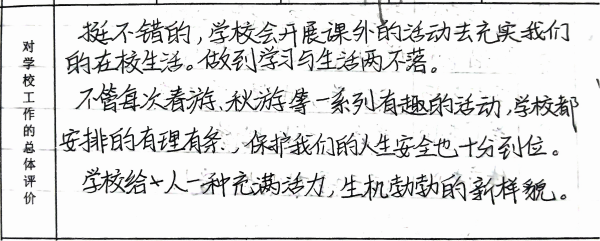 对学校工作的总体评价
挺不错的，学校会开展课外的活动去充实我们
的在校生活。做到学习与生活两不落。
不管每次春游、秋游等一系列有趣的活动，学校都
安排的有理有条，保护我们的人生安全也十分到位。
学校给人一种充满活力，生机勃勃的新样貌。